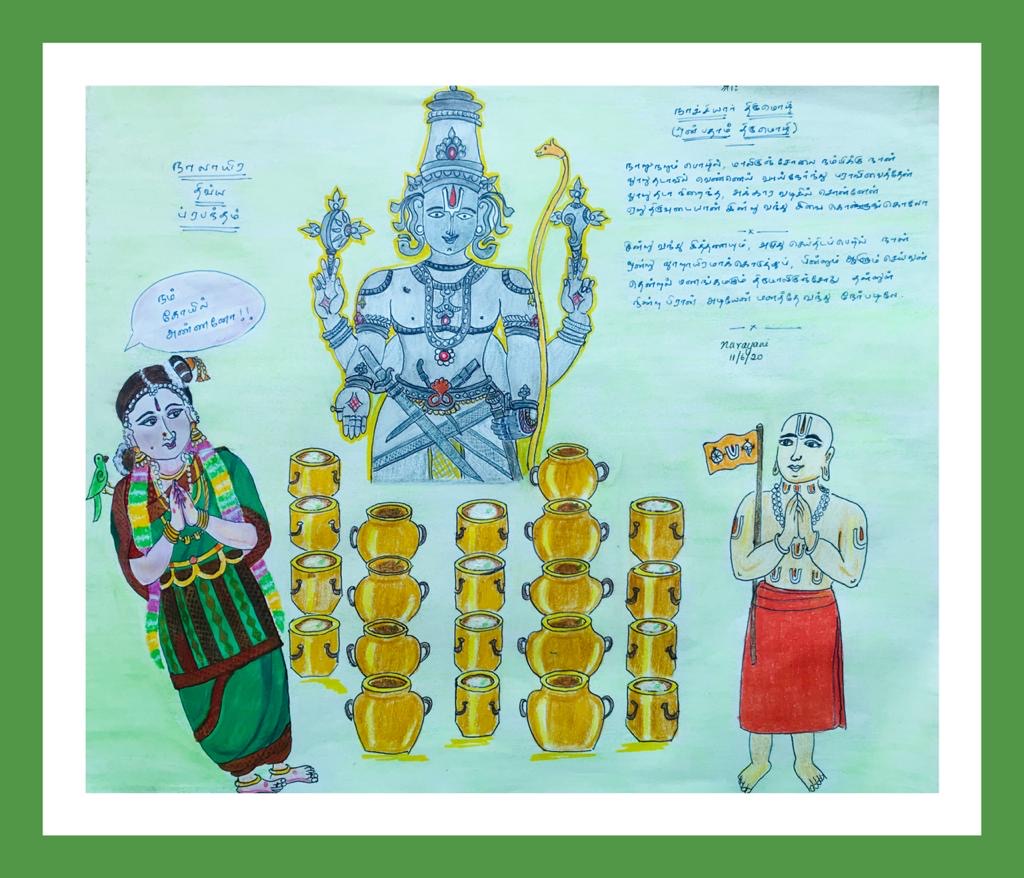 நாலாயிர
திவ்ய
ப்ரபந்தம்
நம்
கோயில்
அண்ணனோ!!
ஸ்ரீ:
நாச்சியார் திருமொழி
(ஒன்பதாம் திருமொழி)
நாறு நறும் பொழில், மாலிருஞ்சோலை நம்பிக்கு நான்
நூறு தடாவில் வெண்ணெய் வாய்நேர்ந்து பராவிவைத்தேன்
நூறு தடா நிறைந்த, அக்கார வடிசில் சொன்னேன்
ஏறு திருவுடையான் இன்று வந்து இவை கொள்ளுங்கொலோ
இன்று வந்து இத்தனையும், அமுது செய்திடப்பெறில் நான்
ஒன்று நூறாயிரமாக்கொடுத்துப், பின்னும் ஆளும் செய்வன்
தென்றல் மணங்கமழும் திருமாலிருஞ்சோலை தன்னுள்
நின்ற பிரான் அடியேன் மனத்தே வந்து நேர்படிலே.
Narayani
11/6/20